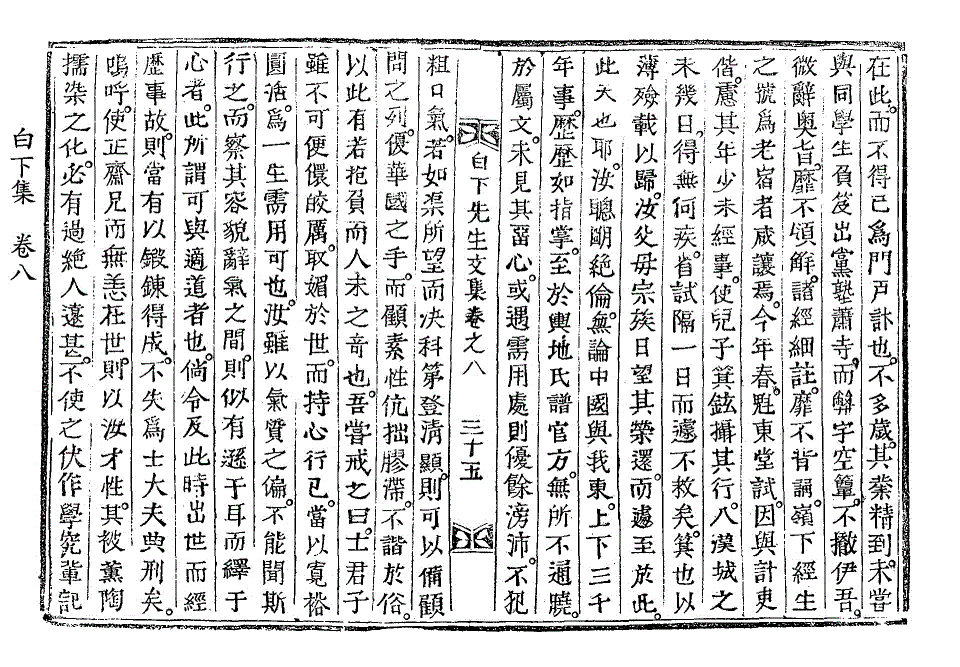 在此。而不得已爲門戶計也。不多歲。其業精到。未嘗
與同學生負笈出黨塾蕭寺。而斠字空簟。不撤伊吾。
微辭奧旨。靡不領解。諸經細註。靡不背誦。嶺下經生
之號爲老宿者咸讓焉。今年春。赴東堂試。因與計吏
偕。慮其年少未經事。使兒子箕鉉攝其行。入漢城之
未幾日。得無何疾。省試隔一日而遽不救矣。箕也以
薄殮載以歸。汝父母宗族日望其榮還。而遽至於此。
此天也耶。汝聰明絶倫。無論中國與我東。上下三千
年事。歷歷如指掌。至於輿地氏譜官方。無所不通曉。
於屬文。未見其留心。或遇需用處則優餘滂沛。不犯
白下先生文集卷之八 三十五
粗口氣。若如渠所望而决科第登清顯。則可以備顧
問之列。優華國之手。而顧素性伉拙膠滯。不諧於俗。
以此有若抱負而人未之奇也。吾嘗戒之曰。士君子
雖不可便儇皎厲。取媚於世。而持心行已。當以寬裕
圓活。爲一生需用可也。汝雖以氣質之偏。不能聞斯
行之。而察其容貌辭氣之間。則似有遜于耳而繹于
心者。此所謂可與適道者也。倘令及此時出世而經
歷事故。則當有以鍛鍊得成。不失爲士大夫典刑矣。
嗚呼。使正齋兄而無恙在世。則以汝才性。其被薰陶
擩染之化。必有過絶人遠甚。不使之伏作學究輩記
白下集 卷八